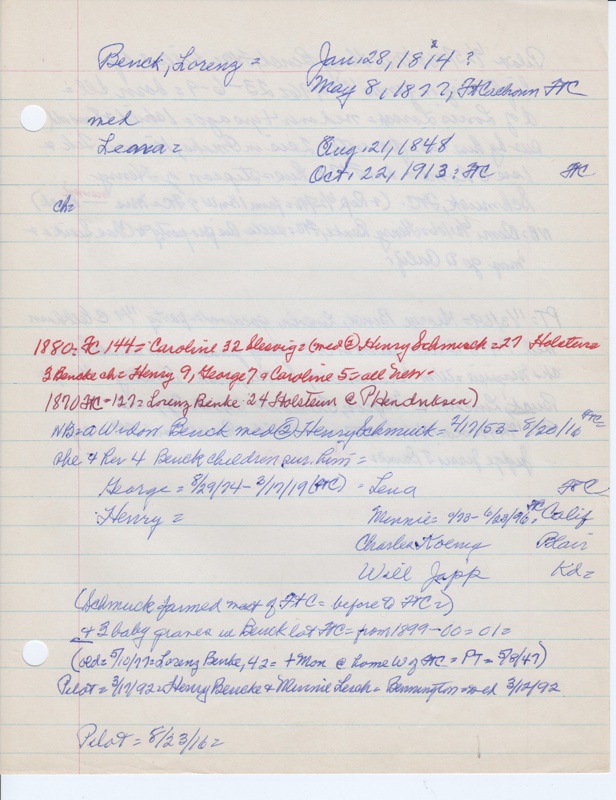 Benck, Lorenz = Jan. 28, 1814 ?
2
May 8, 1877, Ft Calhoun FTC
med
Leana = Aug. 21, 1848
Oct. 22, 1913 = FTC FTC
ch=
1880= FC 144= Caroline 32 Slesvig = (med ② Henry Schmuck = 27 Holstein
3 Bencke ch = Henry 9, George 7 + Caroline 5 = all Nebr.
1870 FTC = 127 = Lorenz Benke 24 Holstein @ P Hendricksen)
NB = a Widow Benck med ② Henry Schmuck = 2/17/53 - 8/20/16 FTC=
she + her 4 Benck children sur. him =
George = 8/29/74 - 2/17/19 (FTC) = Lena FTC
Henry = Minnie = /73 - 6/23/96 FTC, Calif
Charles Koenig Blair
Will Japp Kd=
(Schmuck farmed west of FTC = before to FTC=)
+ 3 baby graves in Benck lot FTC = from 1899 - 00 = 01 =
(old = 5/10/77 = Lorenz Benke, 42 = + Mon @ home W of FTC = PT = 5/5/47)
Pilot = 3/17/92 = Henry Bencke + Minnie Lesch = Bennington = med 3/12/92.
Pilot = 8/23/16 =